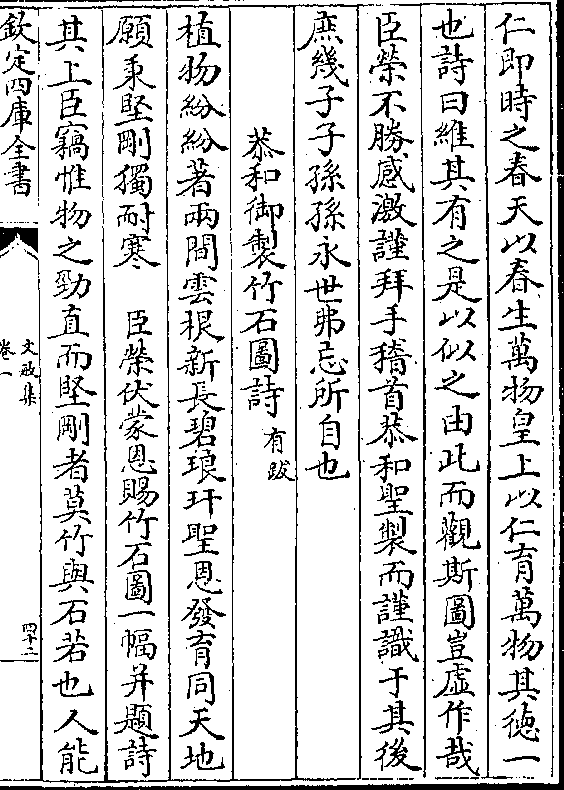 仁即時之春天以春生萬物皇上以仁育萬物其徳一
也詩曰維其有之是以似之由此而觀斯圖豈虛作哉
臣榮不勝感激謹拜手稽首恭和聖製而謹識于其後
庶幾子子孫孫永世弗忘所自也
恭和御製竹石圖詩有跋
植物紛紛著兩間雲根新長碧琅玕聖恩發育同天地
願秉堅剛獨耐寒　臣榮伏蒙恩賜竹石圖一幅并題詩
其上臣竊惟物之勁直而堅剛者莫竹與石若也人能
欽定四庫全書
文敏集
卷一
四十二